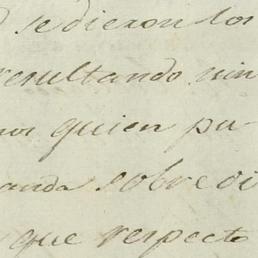 se dieron los
resultando nin
quien pu
anda sobre di
que respecto